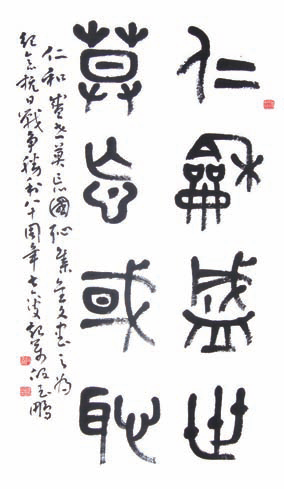 仁龢盛世
莫忘或耻
仁和盛世莫忘國耻集金文書之為
紀念抗日戰争勝利八十周年